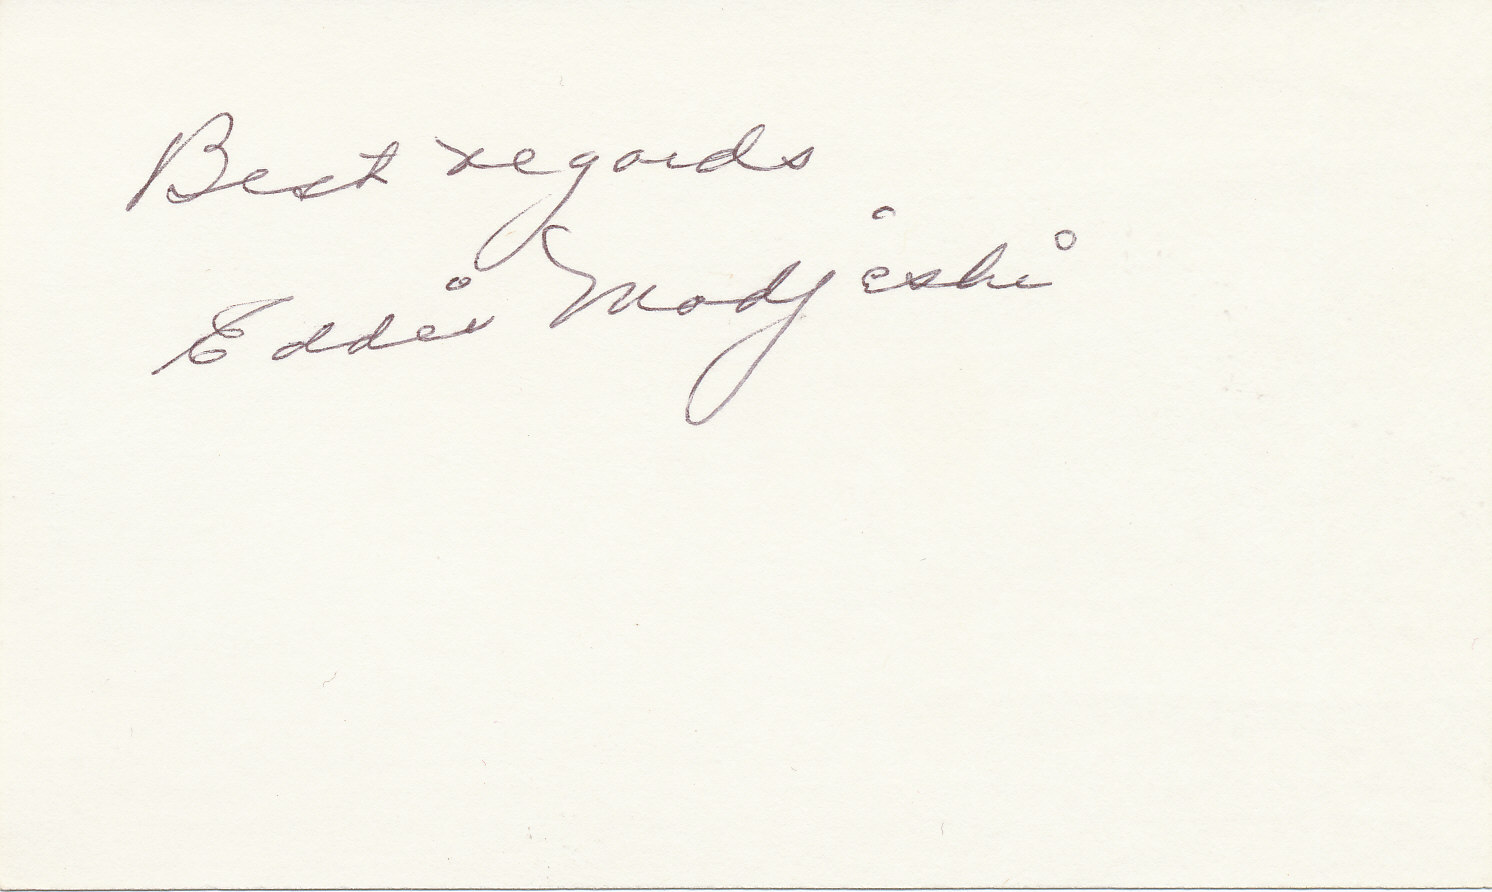 Best regards
Eddie Modjeski